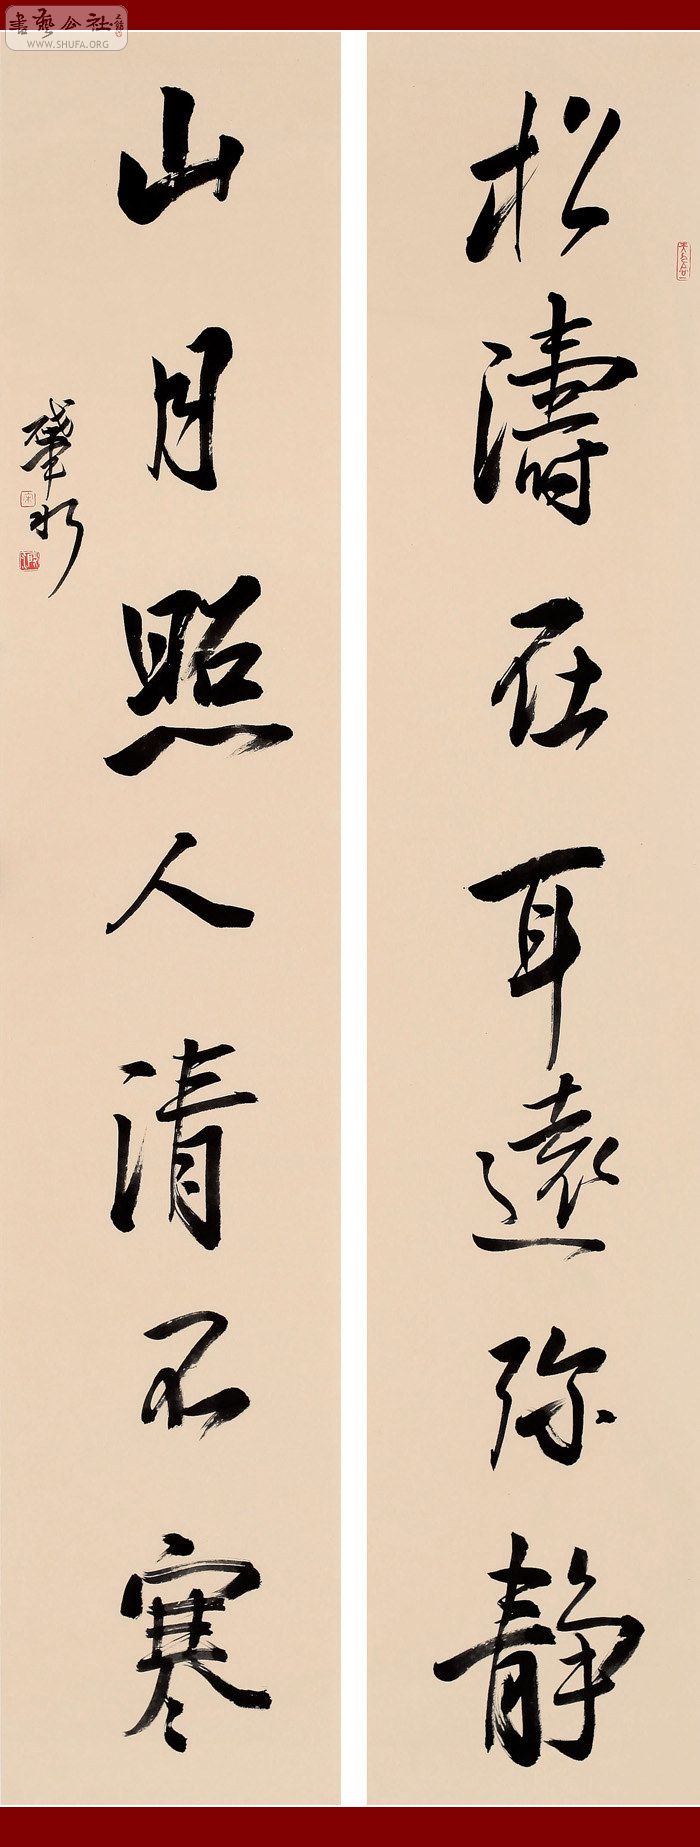 松濤在耳遠弥静
山月照人清不寒
書藝公社
WWW.SHUFA.ORG